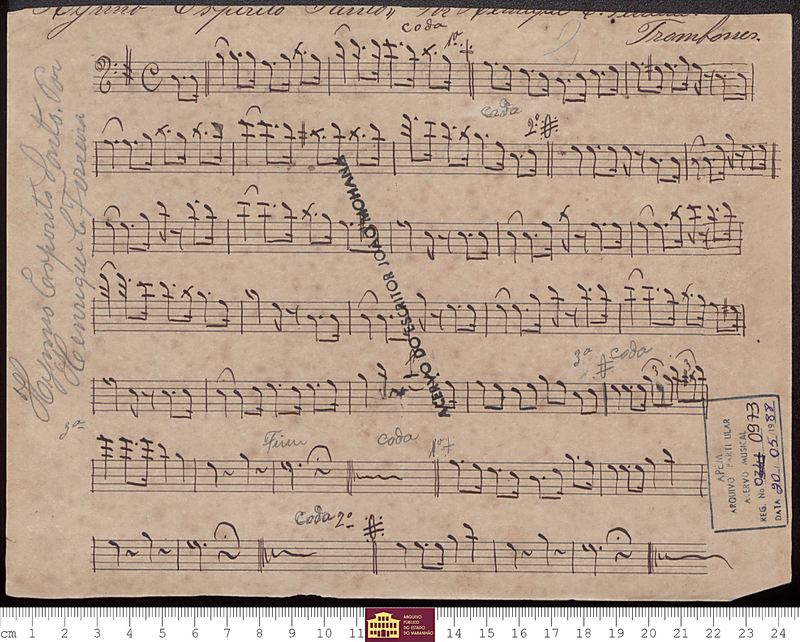 Hymno Espirito Santo, por Henrique C. Ferreira.
Trombones.
Coda
1º
Coda
2º
Hymno Espirito Santo. Por
Henrique C. Ferreira
ACERVO DO ESCRITOR JOÃO MOHANA
3ª Coda
3 3
3ª
Fim
Coda
1º
Coda 2º
APEM
ARQUIVO PARTICULAR
ACERVO MUSICAL
REG. No 0973
DATA 20.05.1988
cm 1 2 3 4 5 6 7 8 9 10 11 14 15 16 17 18 19 20 21 22 23 24
ARQUIVO
PÚBLICO
DO ESTADO
DO MARANHÃO